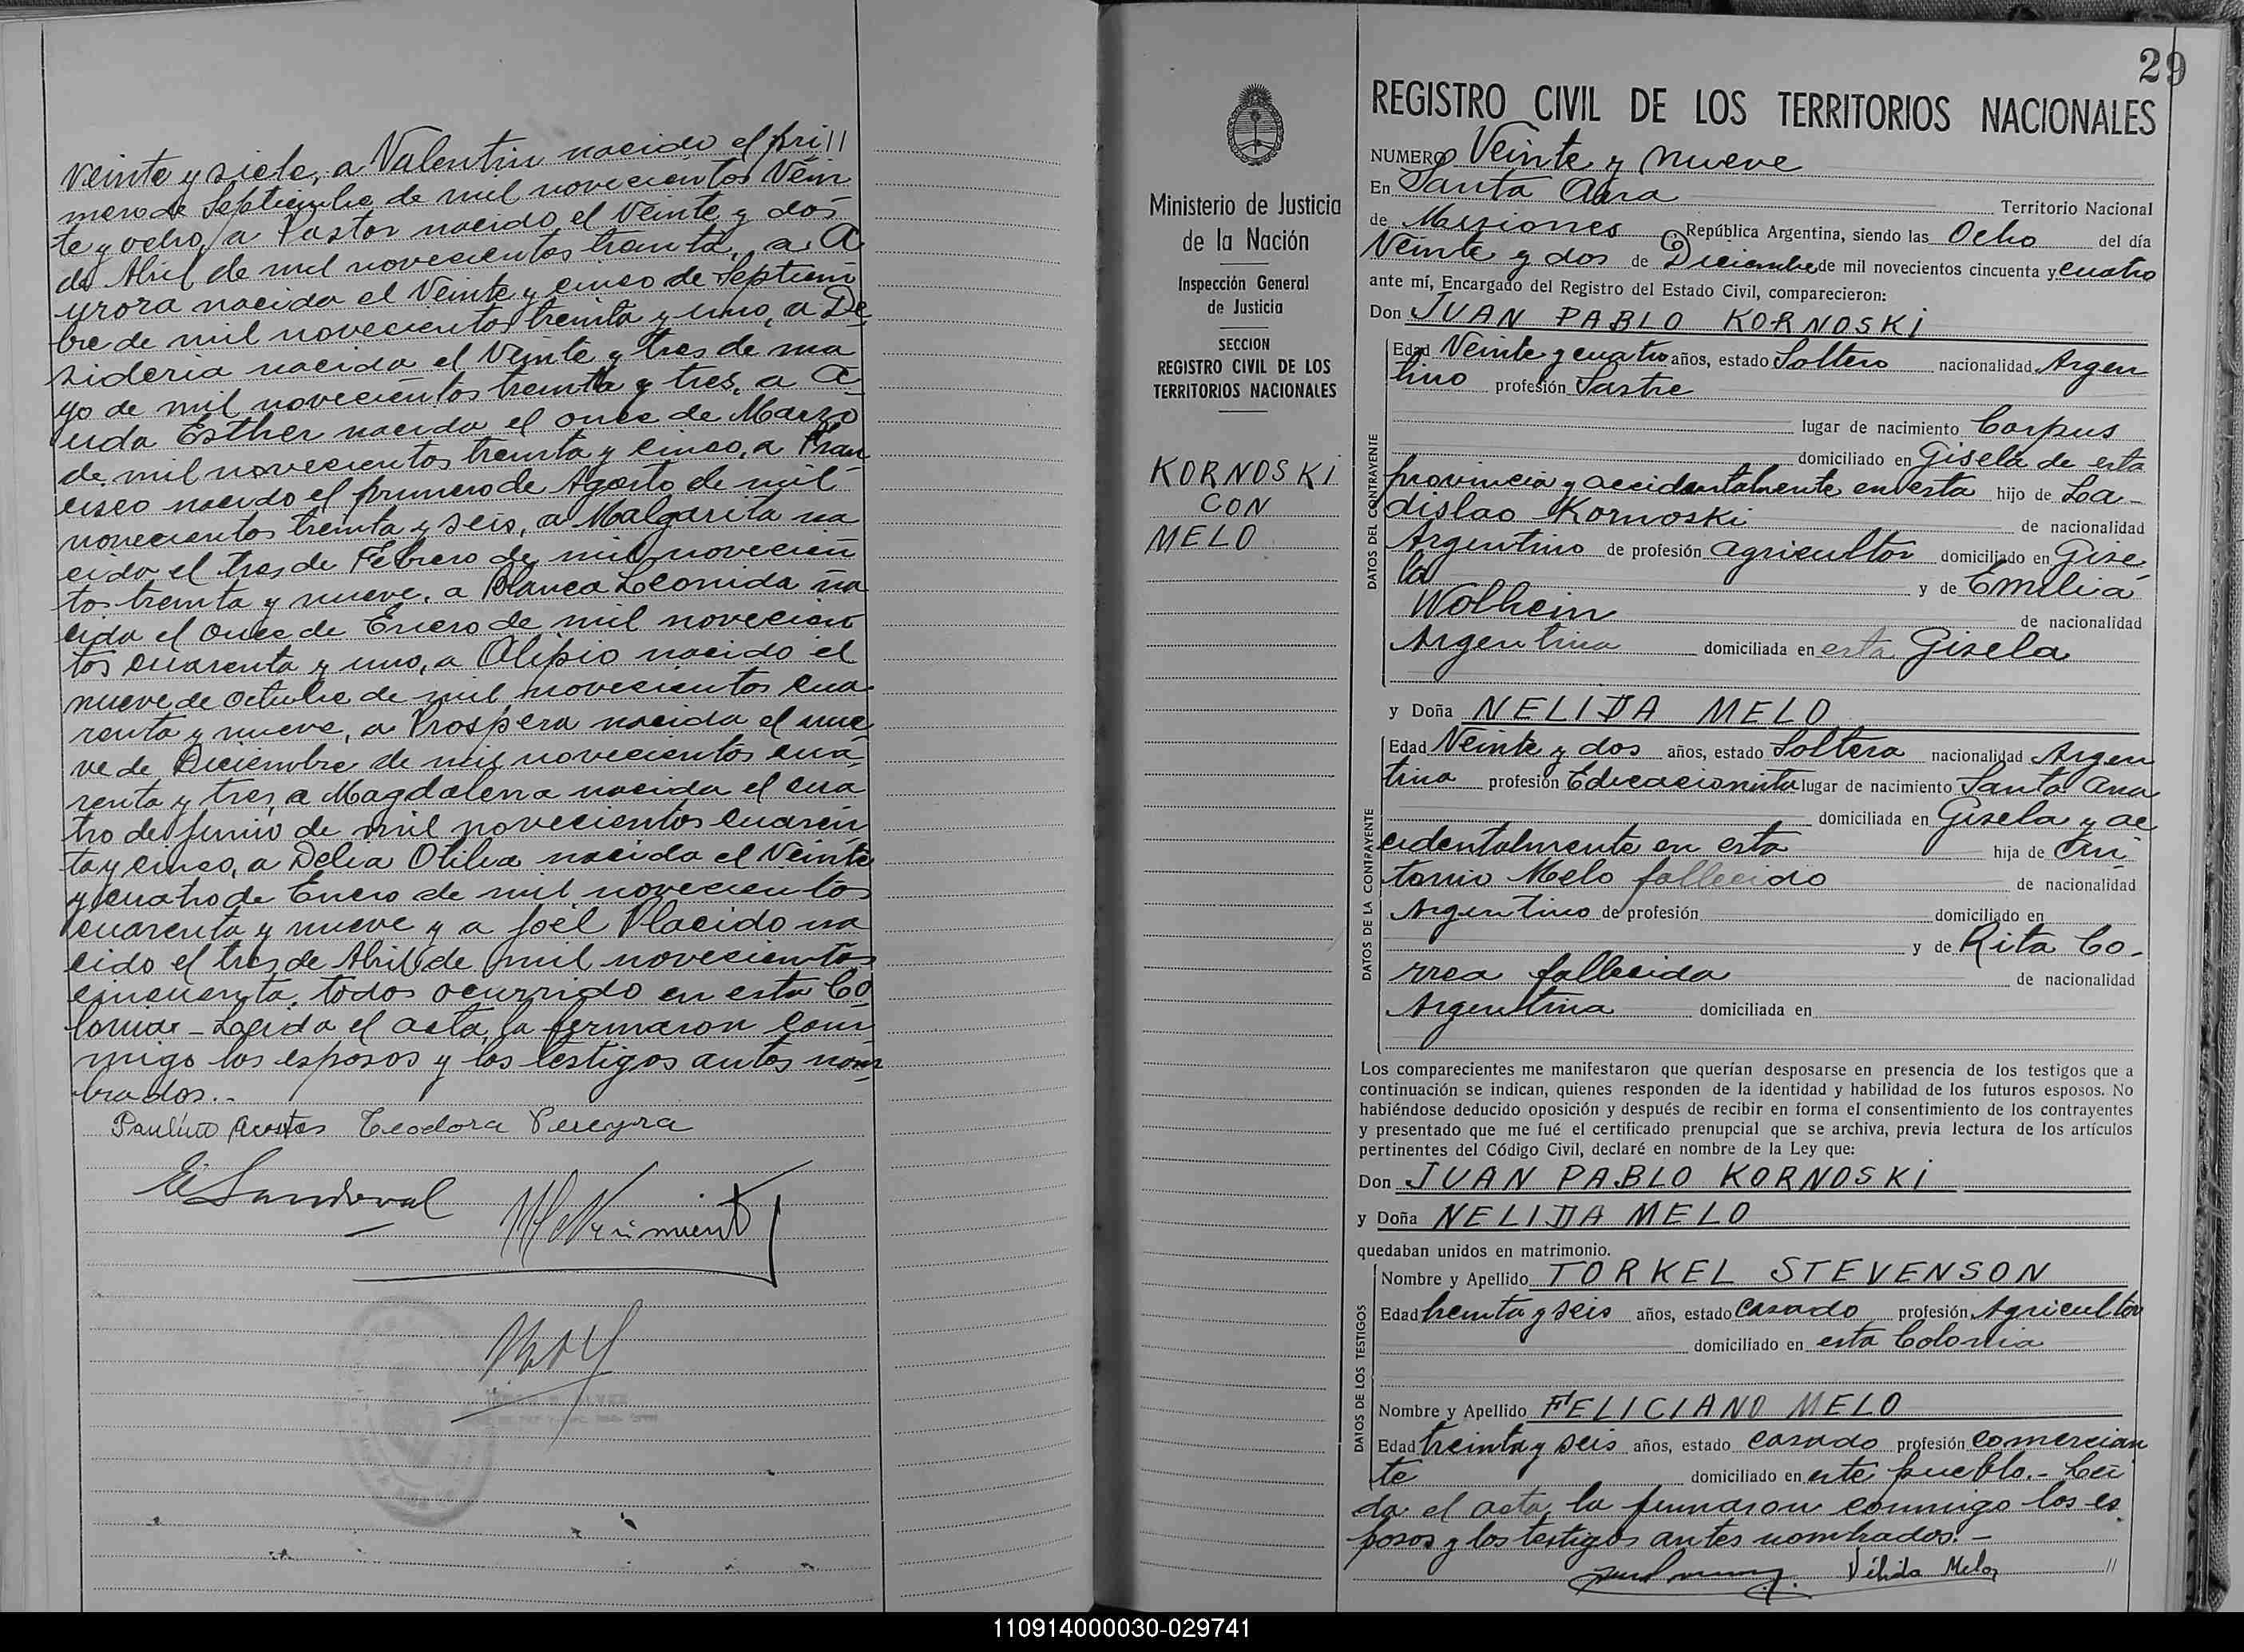 veinte y siete, a Valentin nacido el pri//
mero de Septiembre de mil novecientos Vein
te y ocho, a Pastor nacido el Veinte y dos
de Abril de mil novecientos treinta, a A
urora nacida el Veinte y cinco de Septiem
bre de mil novecientos treinta y uno, a De
sideria nacida el Veinte y tres de ma
yo de mil novecientos treinta y tres, a A
uda Esther nacida el once de Marzo
de mil novecientos treinta y cinco, a Fran
cisco nacido el primero de Agosto de mil
novecientos treinta y seis, a Malgarita na
cida el tres de Febrero de mil novecien
tos treinta y nueve, a Blanca Leonida na
cida el Once de Enero de mil novecien
tos cuarenta y uno, a Alipio nacido el
nueve de Octubre de mil novecientos cua
renta y nueve, a Prospera nacida el nue
ve de Diciembre de mil novecientos cua
renta y tres, a Magdalena nacida el cua
tro de Junio de mil novecientos cuaren
ta y cinco, a Delia Otilia nacida el Veinte
y cuatro de Enero de mil novecientos
cuarenta y nueve y a Joel Placido na
cido el tres de Abril de mil novecientos
cincuenta, todos ocurrido en esta Co
lonia - Leida el acta, la firmaron con
migo los esposos y los testigos antes nom
brados.-
Paulino Acostas Teodora Pereyra
E Sandoval
29
REGISTRO CIVIL DE LOS TERRITORIOS NACIONALES
Ministerio de Justicia
de la Nación
Inspección General
de Justicia
SECCION
REGISTRO CIVIL DE LOS
TERRITORIOS NACIONALES
KORNOSKI
CON
MELO
NUMERO Veinte y nueve
En Santa Ana Territorio Nacional
de Misiones República Argentina, siendo las Ocho del día
Veinte y dos de Diciembre de mil novecientos cincuenta y cuatro
ante mí, Encargado del Registro del Estado Civil, comparecieron:
Don JUAN PABLO KORNOSKI
DATOS DEL CONTRAYENTE
Edad Veinte y cuatro años, estado Soltero nacionalidad Argen
tino profesión Sastre
lugar de nacimiento Corpus
domiciliado en Gisela de esta
provincia y accidentalmente en esta hijo de La-
dislao Kornoski de nacionalidad
Argentino de profesión agricultor domiciliado en Gise-
la y de Emilia
Wolhein de nacionalidad
Argentina domiciliada en esta Gisela
y Doña NELIDA MELO
DATOS DE LA CONTRAYENTE
Edad Veinte y dos años, estado Soltera nacionalidad Argen
tina profesión Educacionista lugar de nacimiento Santa Ana
domiciliada en Gisela y ac
cidentalmente en esta hija de An
tonio Melo fallecido de nacionalidad
Argentino de profesión domiciliado en
y de Rita Co-
rrea fallecida de nacionalidad
Argentina domiciliada en
Los comparecientes me manifestaron que querían desposarse en presencia de los testigos que a
continuación se indican, quienes responden de la identidad y habilidad de los futuros esposos. No
habiéndose deducido oposición y después de recibir en forma el consentimiento de los contrayentes
y presentado que me fué el certificado prenupcial que se archiva, previa lectura de los artículos
pertinentes del Código Civil, declaré en nombre de la Ley que:
Don JUAN PABLO KORNOSKI
y Doña NELIDA MELO
quedaban unidos en matrimonio.
DATOS DE LOS TESTIGOS
Nombre y Apellido TORKEL STEVENSON
Edad treinta y seis años, estado casado profesión Agricultor
domiciliado en esta Colonia
Nombre y Apellido FELICIANO MELO
Edad treinta y seis años, estado casado profesión comercian
te domiciliado en este pueblo.- Lei
da el acta, la firmaron conmigo los es
posos y los testigos antes nombrados.-
Nélida Melo //
110914000030-029741